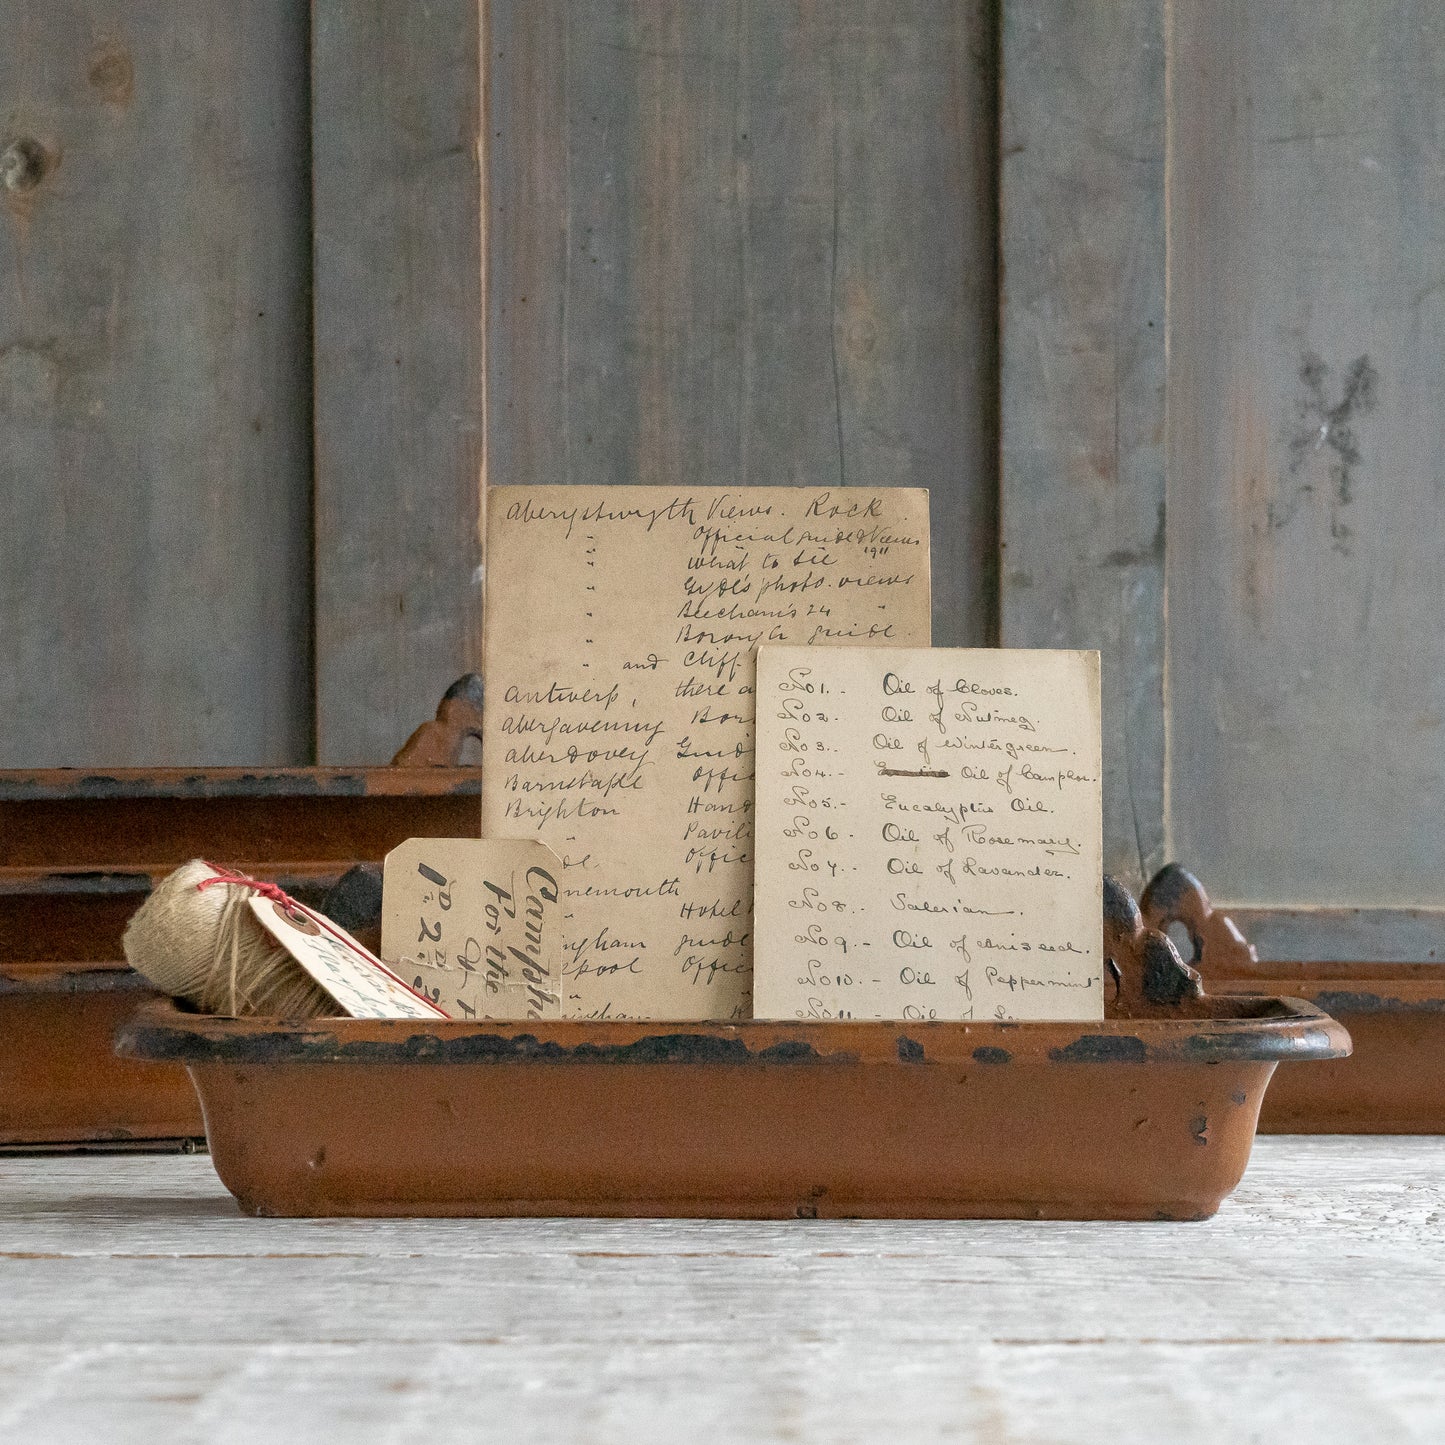 Aberystwyth Views. Rock.
" Official guide & Views
" What to See 1911
" Gyde's photo. views
" Beecham's 24 "
" Borough guide.
" and Cliff
Antwerp, there a
Abergavenny Bor
Aberdovey Guid
Barnstaple Offic
Brighton Hand
" Pavili
Offic
nemouth
" Hotel
ingham guide
pool Offic
"
No 1. - Oil of Cloves.
No 2. Oil of Nutmeg.
No 3. Oil of Wintergreen.
No 4. - Oil of Camphor.
No 5. - Eucalyptus Oil.
No 6. Oil of Rosemary.
No 7. - Oil of Lavander.
No 8. - Valerian.
No 9. - Oil of Aniseed.
No 10. - Oil of Peppermint
No 11. - Oil of
Camph
For the
of